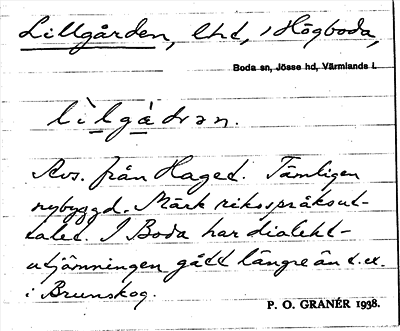 Lillgården, lht, i Högboda,
Boda sn, Jösse hd, Värmlands l.
lìlgàdɘn.
Avs. från Haget. Tämligen
nybyggd. Märk riksspråksut-
talet. I Boda har dialekt-
utjämningen gått längre än t.ex.
i Brunskog.
P. O. GRANÉR 1938.